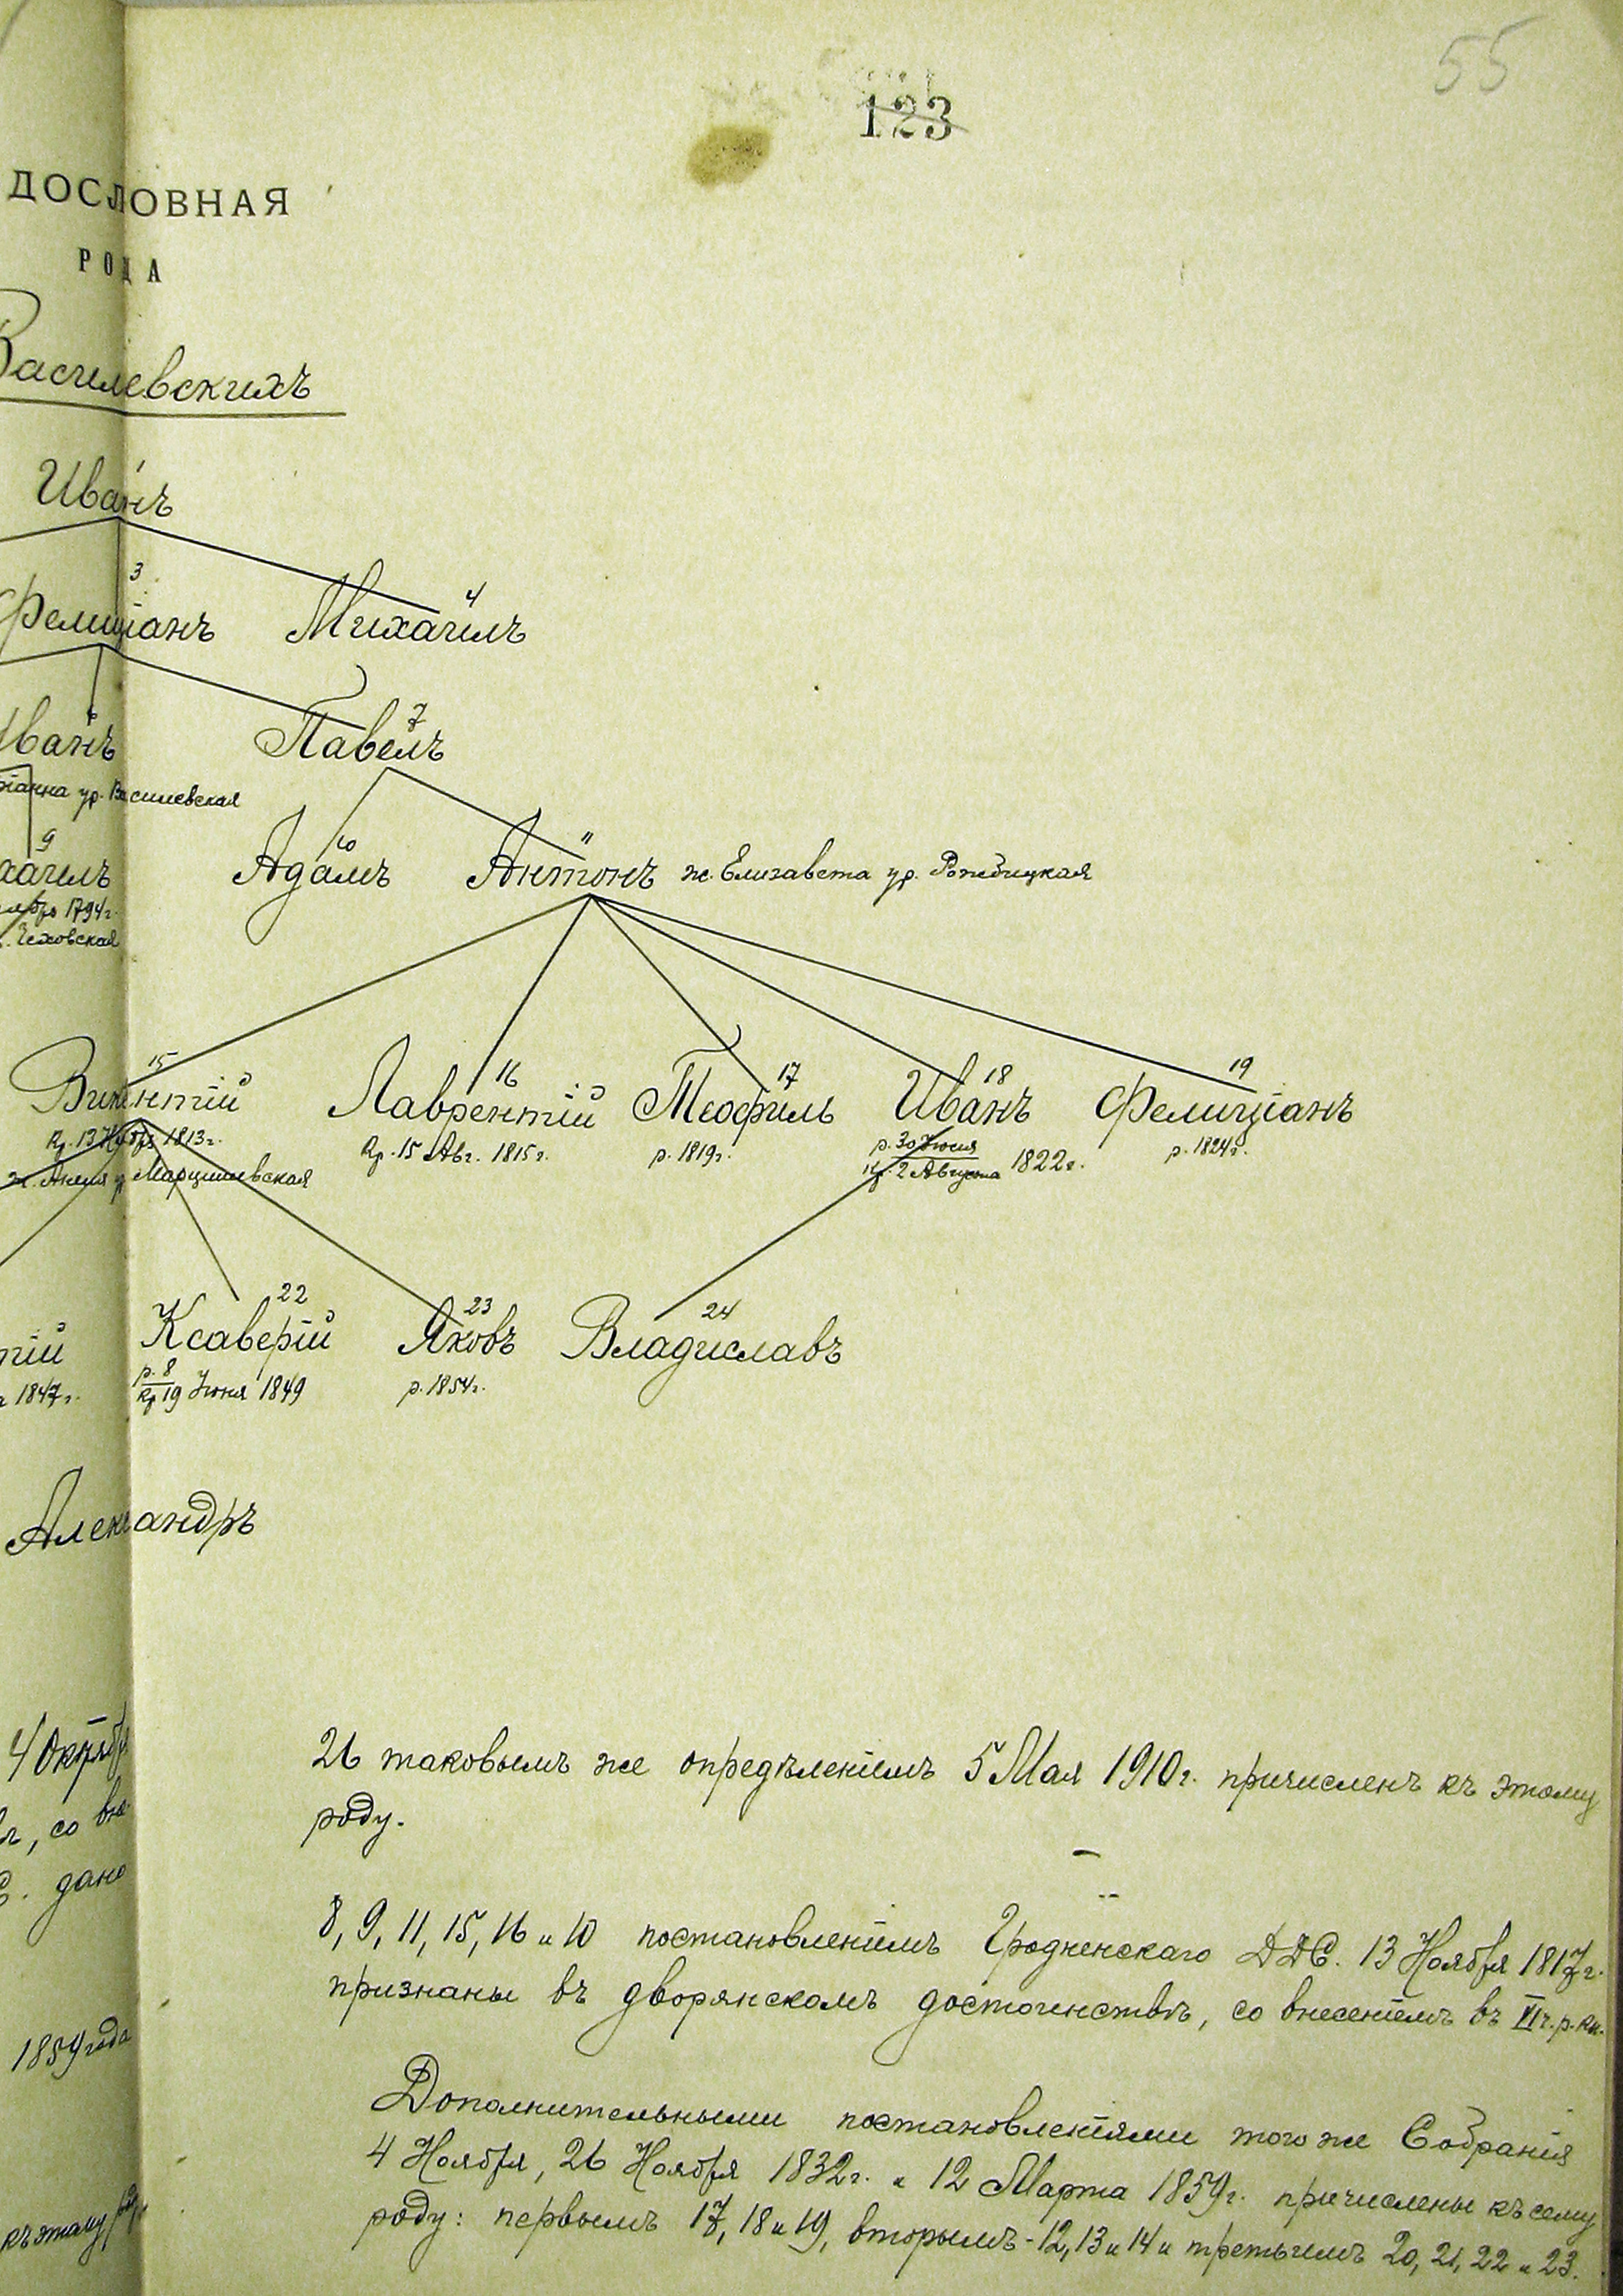 55
123
ДОСЛОВНАЯ
РОДА
Василевскихъ
Иванъ
3 4
Фелиціанъ Михаилъ
7
Иванъ Павелъ
ур. Василевская
9 10 11
хаилъ Адамъ Антонъ ж. Елизавета ур.
1794г.
Чеховская
15 16 17 18 19
Викентій Лаврентій Теофиль Иванъ Фелиціанъ
кр. 13 Нябр. 1813г. кр. 15 Авг. 1815г. р. 1819г. р. 30 Іюля р. 1824г.
кр. 2 Августа 1822г.
ж. Анеля у. Марцишевская
22 23 24
тій Ксаверій Яковъ Владиславъ
р. 8
1847г. кр 19 Іюня 1849 р. 1854г.
Александръ
4 Октяб
26 таковымъ же опредѣленіемъ 5 Мая 1910г. причисленъ къ этому
, со вне
роду.
дано
8, 9, 11, 15, 16 и 10 постановленіемъ Гродненскаго ДДС. 13 Ноября 1817г.
признаны въ дворянскомъ достоинствѣ, со внесеніемъ въ VI ч. р. кн.
1859 года
Дополнительными постановленіями того же Собранія
4 Ноября, 26 Ноября 1832г. и 12 Марта 1859г. причислены къ сему
роду: первымъ 17, 18 и 19, вторымъ - 12, 13 и 14 и третьимъ 20, 21, 22 и 23.
къ этому роду